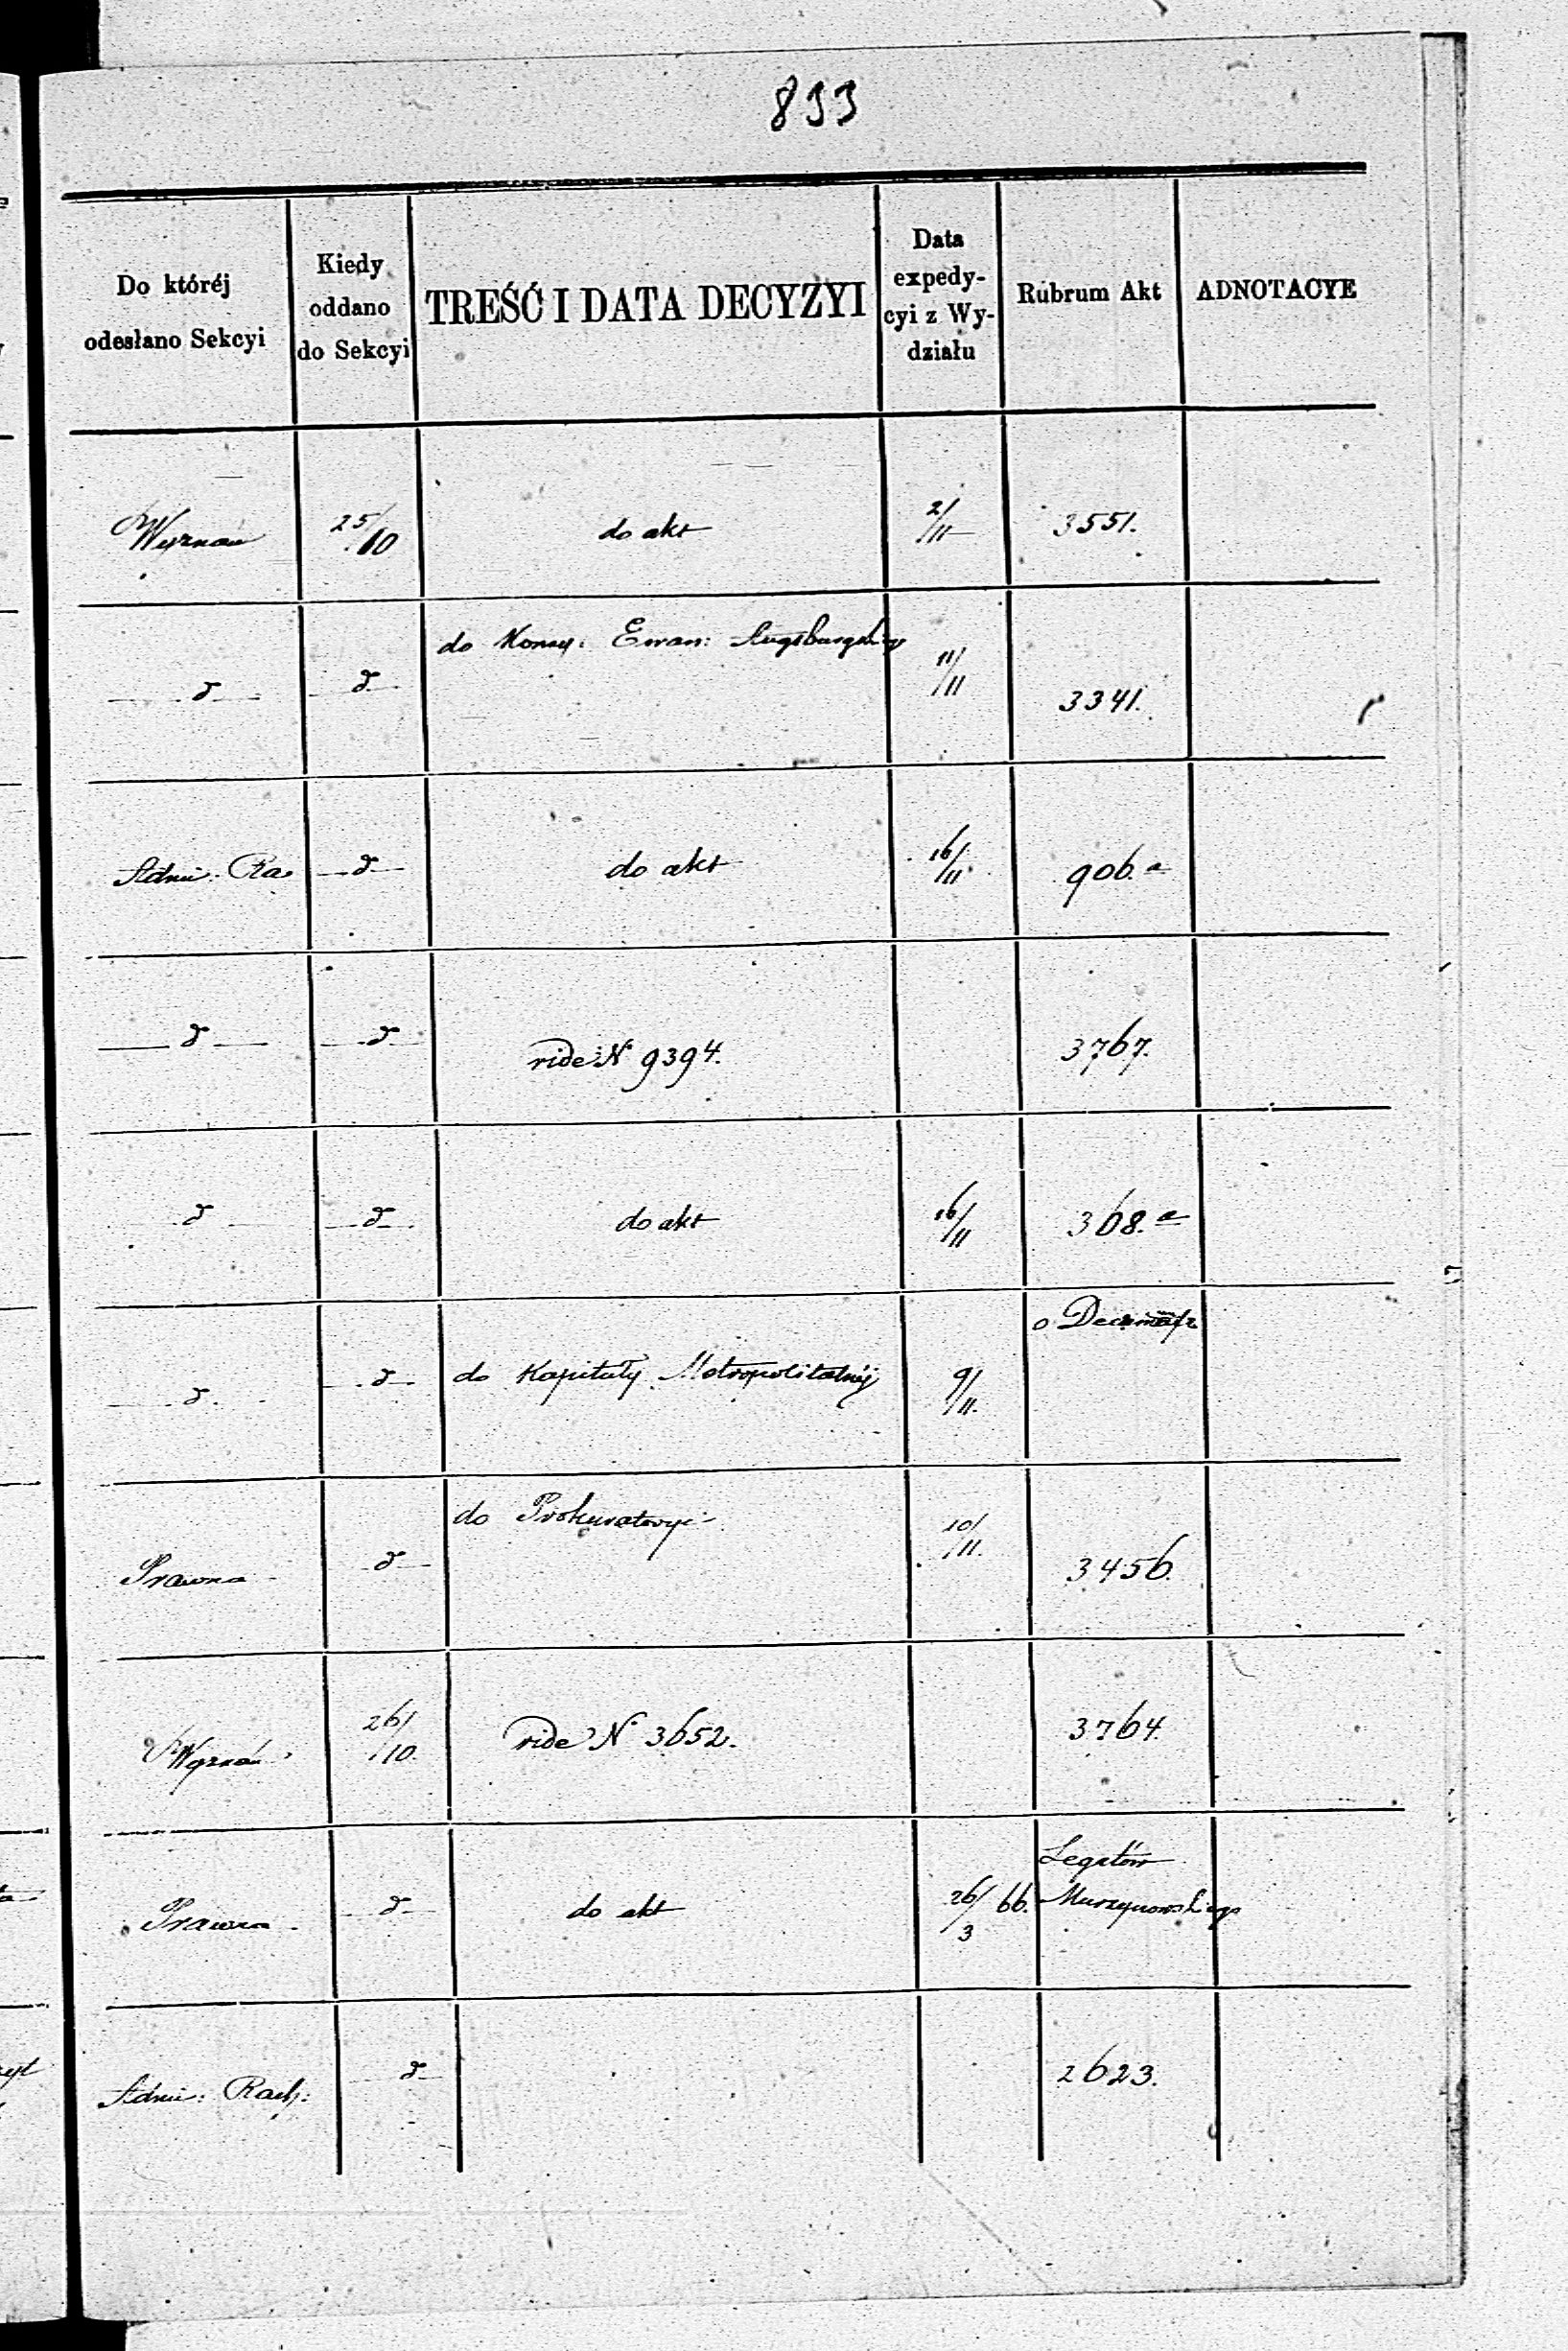 833
Do któréj odesłano Sekcyi
Kiedy oddano do Sekcyi
TREŚĆ I DATA DECYZYI
Data expedy-cyi z Wy-działu
Rubrum Akt
ADNOTACYE
Wyznań 25/10 do akt 2/11 3551.
d d do Konsy: Ewan: Augsburgskiego 11/11 3341.
Admi: Ra d do akt 16/11 906.a
d d vide N 9394. 3767.
d d do akt 16/11 368.a
d d do Kapituły Metropolitalnéj 9/11 o
do Prokuratoryi 10/11
Prawna d 3456.
Wyznań 26/10 vide N 3652. 3764.
Legatów
Prawna d do akt 26/3 66. Murzynowskiego
Admi: Rach: d 2623.